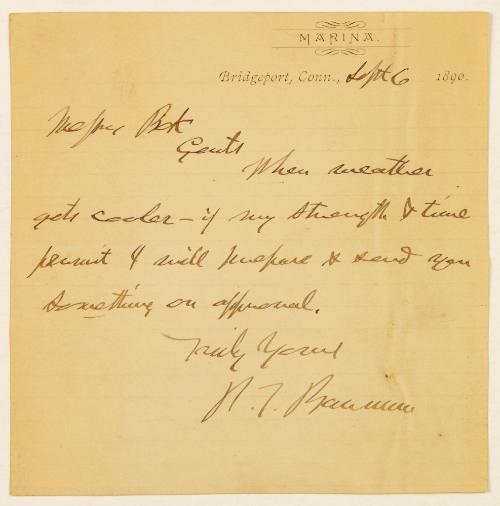 MARINA.
Bridgeport, Conn., Sept 6 1890.
Messrs Bok
Gents
When weather
gets cooler - if my strength & time
permit I will prepare & send you
something on approval.
Truly Yours
P. T. Barnum